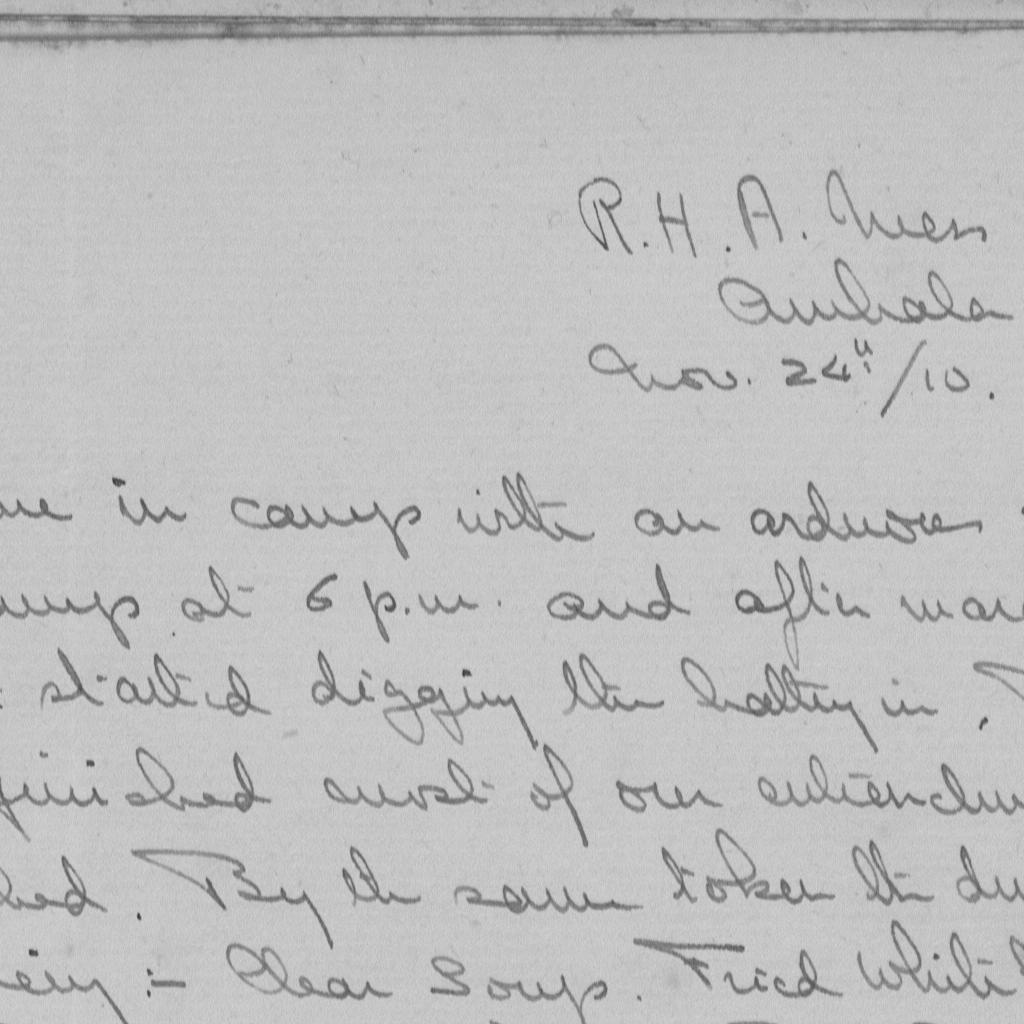 R.H.A. Mess
Ambala
Nov. 24th/10.
in camp with an arduous
at 6 p.m. and after
started digging the battery in.
finished most of our
By the same token the
:- Clear Soup. Fried